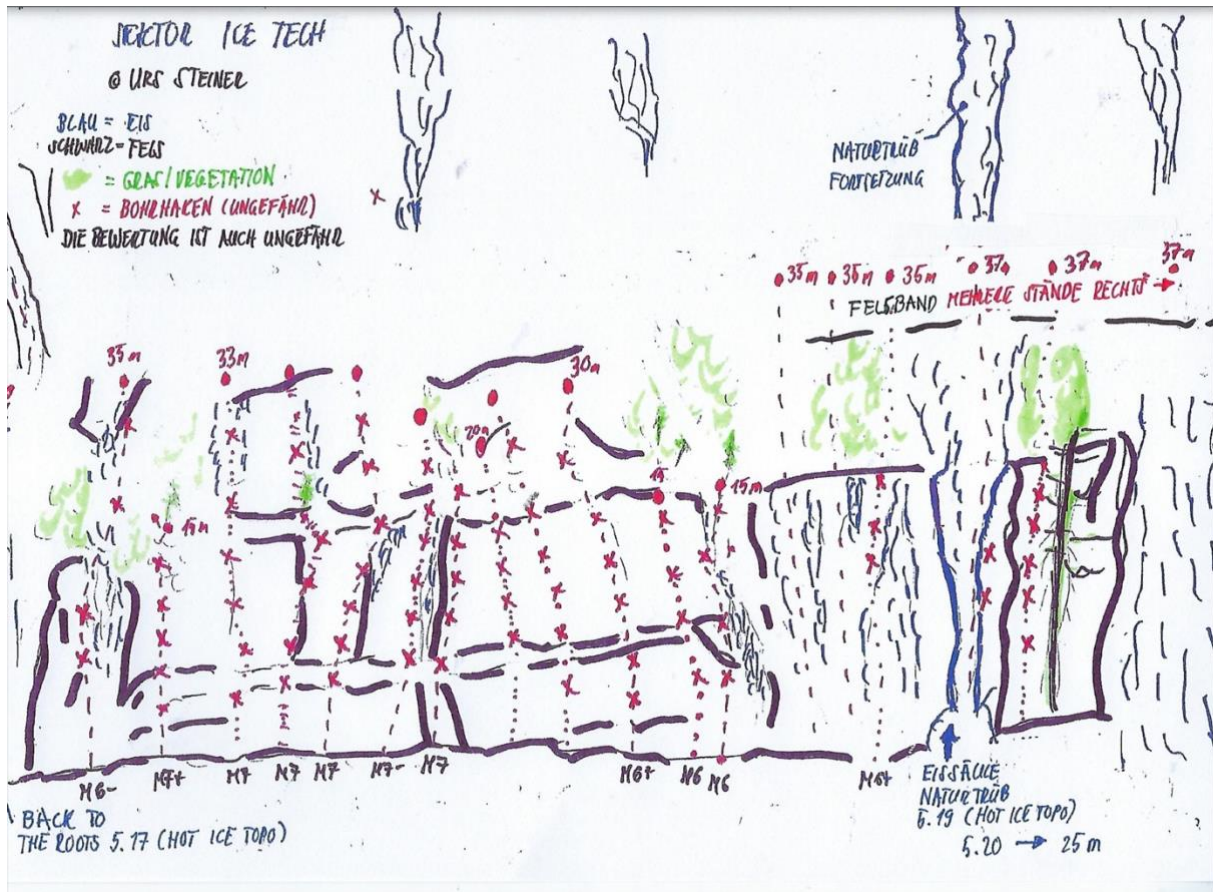 SEKTOR ICE TECH
© URS STEINER
BLAU = EIS
SCHWARZ = FELS
= GRAS/VEGETATION
x = BOHRHAKEN (UNGEFÄHR)
DIE BEWERTUNG IST AUCH UNGEFÄHR
NATURTRÜB
FORTSETZUNG
35m 36m 36m 37m 37m 37m
FELSBAND MEHRERE STÄNDE RECHTS →
35m 33m 30m
20m
15m 15m
M6- M7+ M7 M7 M7 M7- M7 M6+ M6 M6 M6+
BACK TO
THE ROOTS 5.17 (HOT ICE TOPO)
EISSÄULE
NATURTRÜB
5.19 (HOT ICE TOPO)
5.20 → 25m